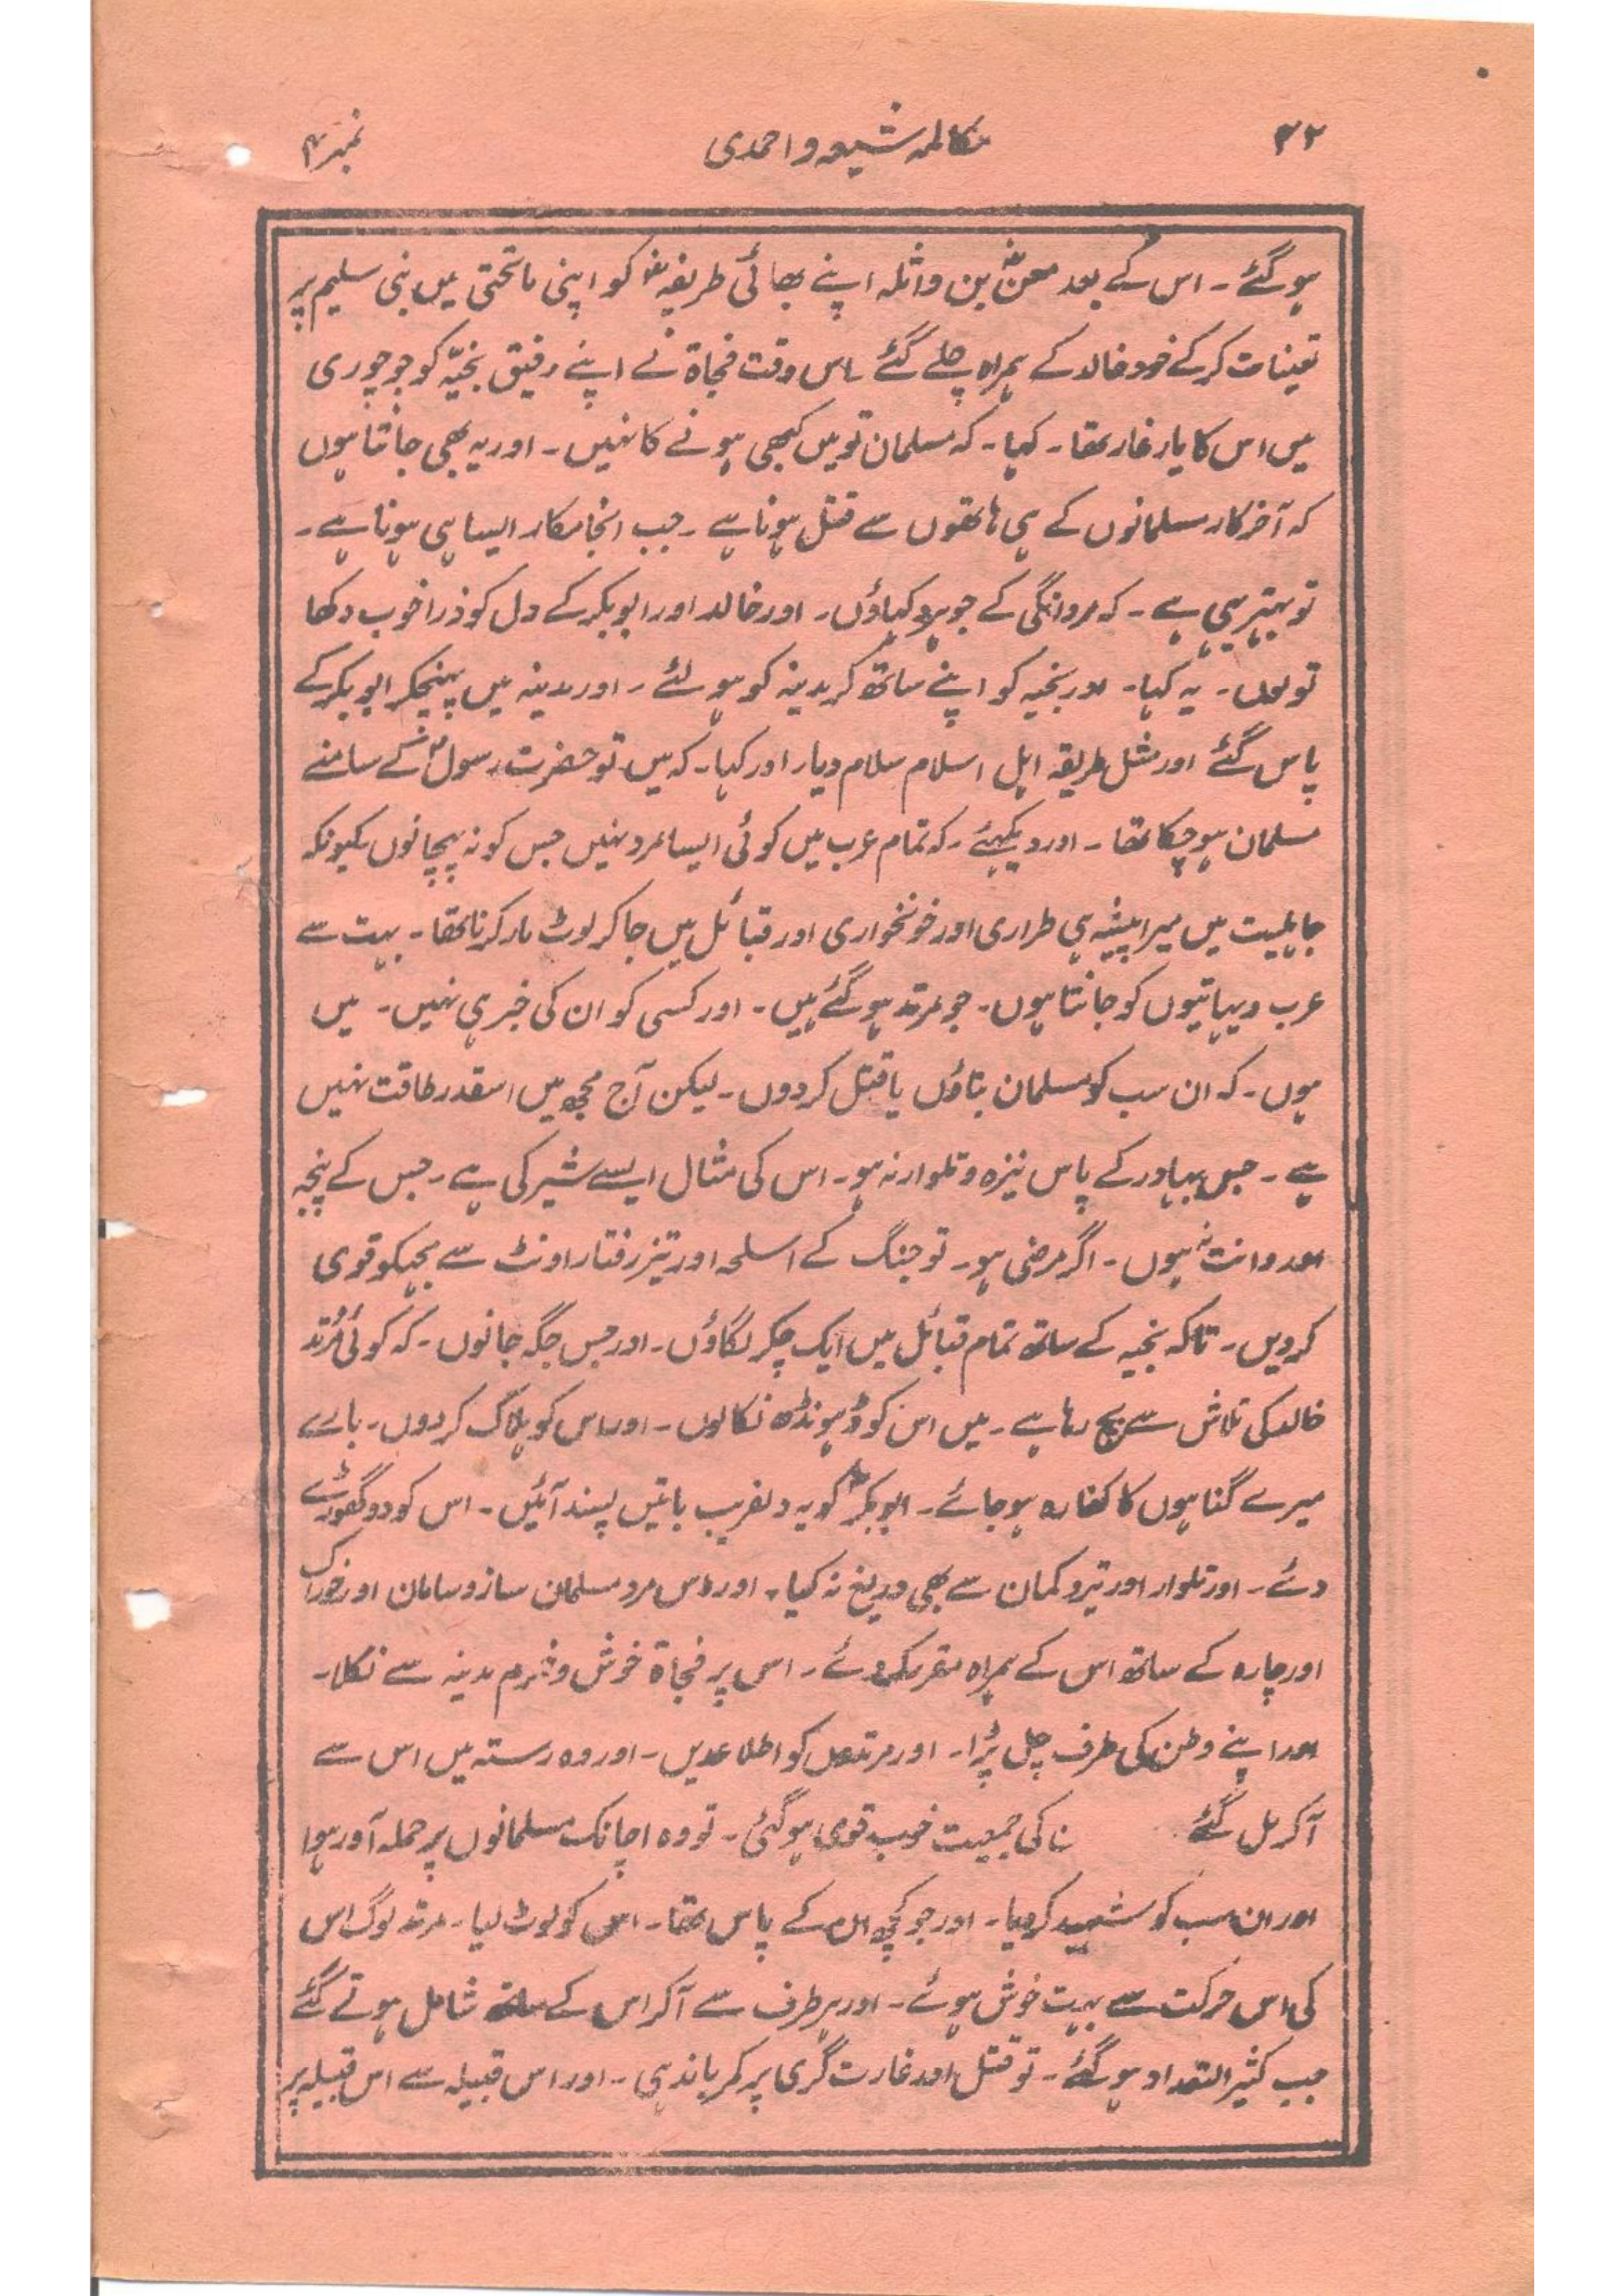 ۳۲ مکالمہ شیعہ و احمدی نمبر ۴
ہو گئے ۔ اس کے بعد معنؓ بن واثلہ اپنے بھائی طریفہؓ کو اپنی ماتحتی میں بنی سلیم پر
تعینات کر کے خود خالد کے ہمراہ چلے گئے ۔ اس وقت فجاۃ نے اپنے رفیق نجیّہ کو جو چوری
میں اس کا یار غار تھا ۔ کہا ۔ کہ مسلمان تو میں کبھی ہونے کا نہیں ۔ اور یہ بھی جانتا ہوں
کہ آخر کار مسلمانوں کے ہی ہاتھوں سے قتل ہونا ہے ۔ جب انجامکار ایسا ہی ہونا ہے ۔
تو بہتر یہی ہے ۔ کہ مردانگی کے جوہر دکہاؤں ۔ اور خالد اور ابوبکر کے دل کو ذرا خوب دکھا
تو لوں ۔ یہ کہا ۔ اور نجیہ کو اپنے ساتھ کر مدینہ کو ہو لئے ۔ اور مدینہ میں پہنچکر ابوبکر کے
پاس گئے اور مثل طریقہ اہل اسلام سلام دیا ۔ اور کہا ۔ کہ میں تو حضرت رسولؐ کے سامنے
مسلمان ہو چکا تھا ۔ اور دیکہئے ۔ کہ تمام عرب میں کوئی ایسا مرد نہیں جس کو نہ پہچانوں کیونکہ
جاہلیت میں میرا پیشہ ہی طراری اور خونخواری اور قبائل میں جا کر لوٹ مار کرنا تھا ۔ بہت سے
عرب دیہاتیوں کو جانتا ہوں ۔ جو مرتد ہو گئے ہیں ۔ اور کسی کو ان کی خبر ہی نہیں ۔ میں
ہوں ۔ کہ ان سب کو مسلمان بناؤں یا قتل کر دوں ۔ لیکن آج مجھ میں اسقدر طاقت نہیں
ہے ۔ جس بہادر کے پاس نیزہ و تلوار نہ ہو ۔ اس کی مثال ایسے شیر کی ہے ۔ جس کے پنجہ
اور دانت نہ ہوں ۔ اگر مرضی ہو ۔ تو جنگ کے اسلحہ اور تیز رفتار اونٹ سے مجہکو قوی
کر دیں ۔ تاکہ نجیہ کے ساتھ تمام قبائل میں ایک چکر لگاؤں ۔ اور جس جگہ جانوں ۔ کہ کوئی مُرتد
خالد کی تلاش سے بچ رہا ہے ۔ میں اس کو ڈہونڈھ نکالوں ۔ اور اس کو ہلاک کر دوں ۔ بارے
میرے گناہوں کا کفارہ ہو جائے ۔ ابوبکرؓ کو یہ دلفریب باتیں پسند آئیں ۔ اس کو دو گھوڑے
دئے ۔ اور تلوار اور تیر و کمان سے بھی دریغ نہ کیا ۔ اور دس مرد مسلمان ساز و سامان اور خوراک
اور چارہ کے ساتھ اس کے ہمراہ مقرر کر دئے ۔ اس پر فجاۃ خوش و خرم مدینہ سے نکلا ۔
اور اپنے وطن کی طرف چل پڑا ۔ اور مرتدوں کو اطلاعدیں ۔ اور وہ رستہ میں اس سے
آ کر مل گئے کی جمعیت خوب قوی ہو گئی ۔ تو وہ اچانک مسلمانوں پر حملہ آور ہوا
اور ان سب کو شہید کر دیا ۔ اور جو کچھ ان کے پاس تھا ۔ اس کو لوٹ لیا ۔ مرتد لوگ اس
کی اس حرکت سے بہت خوش ہوئے ۔ اور ہر طرف سے آ کر اس کے ساتھ شامل ہوتے گئے
جب کثیر التعداد ہو گئے ۔ تو قتل اور غارت گری پر کمر باندہی ۔ اور اس قبیلہ سے اس قبیلہ پر